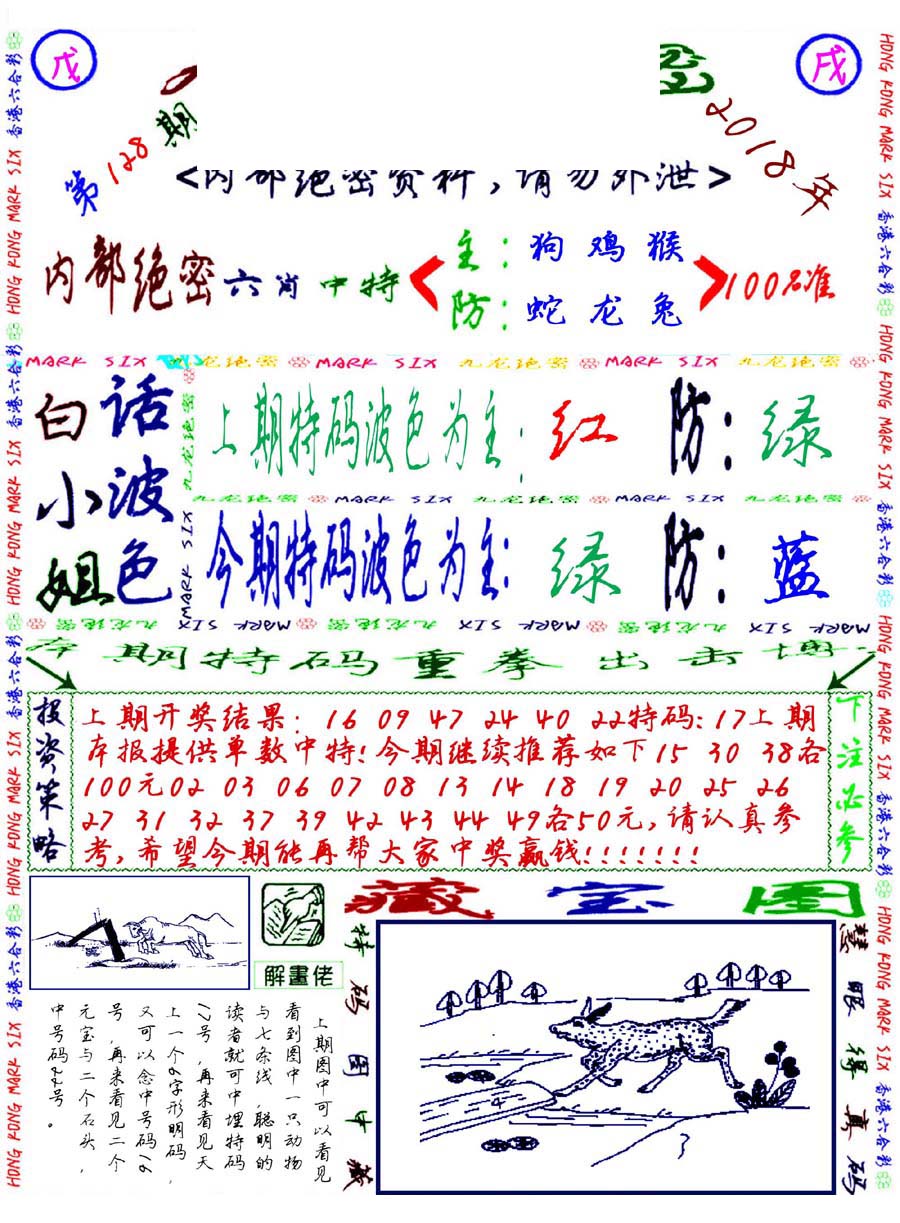 戊
戌
第128期
2018年
<内部绝密资料,请勿外泄>
内部绝密六肖中特
主:狗 鸡 猴
防:蛇 龙 兔
100%准
MARK SIX 九龙绝密 MARK SIX 九龙绝密 MARK SIX 九龙绝密
白小姐
话波色
上期特码波色为主:红 防:绿
九龙绝密 MARK SIX 九龙绝密 MARK SIX 九龙绝密
今期特码波色为主:绿 防:蓝
九龙绝密 MARK SIX 九龙绝密 MARK SIX 九龙绝密 MARK SIX
期特码重拳出击博
投资策略
上期开奖结果: 16 09 47 24 40 22特码:17上期
本报提供单数中特!今期继续推荐如下15 30 38各
100元02 03 06 07 08 13 14 18 19 20 25 26
27 31 32 37 39 42 43 44 49各50元,请认真参
考,希望今期能再帮大家中奖赢钱!!!!!!!
下注必参
藏宝图
解畫佬
上期图中可以看见
看到图中一只动物
与七条线,聪明的
读者就可中埋特码
17号,再来看见天
上一个9字形明码,
又可以念中号码16
号,再来看见二个
元宝与二个石头,
中号码22号。
特码图中藏
慧眼得真码
HONG KONG MARK SIX 香港六合彩 HONG KONG MARK SIX 香港六合彩 HONG KONG MARK SIX 香港六合彩 HONG KONG MARK SIX 香港六合彩
HONG KONG MARK SIX 香港六合彩 HONG KONG MARK SIX 香港六合彩 HONG KONG MARK SIX 香港六合彩 HONG KONG MARK SIX 香港六合彩